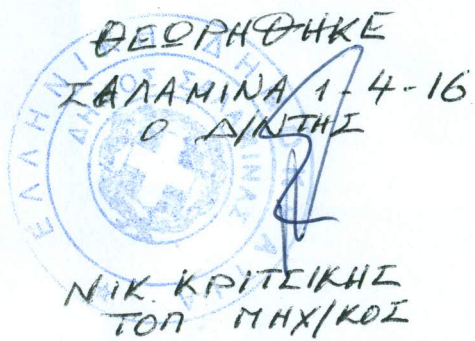 ΘΕΩΡΗΘΗΚΕ
ΣΑΛΑΜΙΝΑ 1-4-16
Ο Δ/ΝΤΗΣ
ΝΙΚ. ΚΡΙΤΣΙΚΗΣ
ΤΟΠ ΜΗΧ/ΚΟΣ